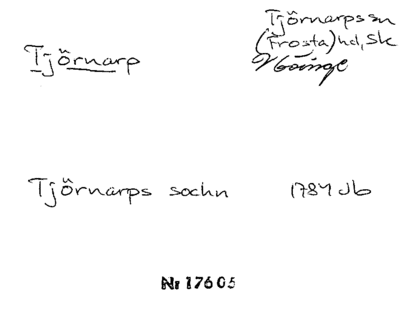 Tjörnarpssn
Tjörnarp (Frosta)hd, Sk
V Göinge
Tjörnarps sochn 1784 Jb
Nr 17605